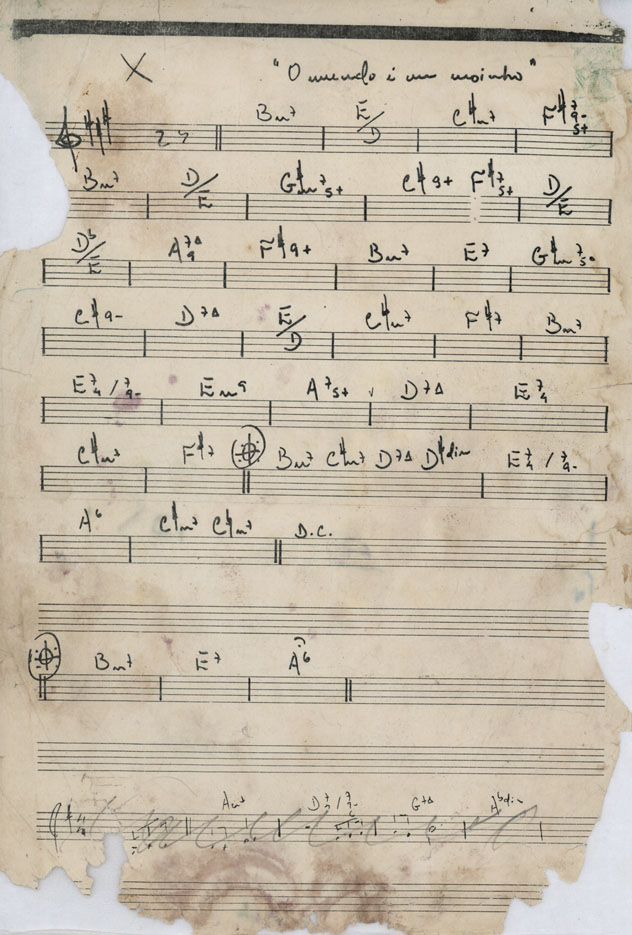 X "O mundo é um moinho"
24 Bm7 E/D C#m7 F#7 9- 5+
Bm7 D/E G#m7 5+ C#9+ F#7 5+ D/E
Db/E A7Δ 9 F#9+ Bm7 E7 G#m7 5-
C#9- D7Δ E/D C#m7 F#7 Bm7
E7 4 / 7 9- Em9 A7 5+ D7Δ E7 4
C#m7 F#7 Bm7 C#m7 D7Δ D#dim E7 4 / 7 9-
A6 C#m7 C#m7 D.C.
Bm7 E7 A6
Am7 G7Δ Abdim